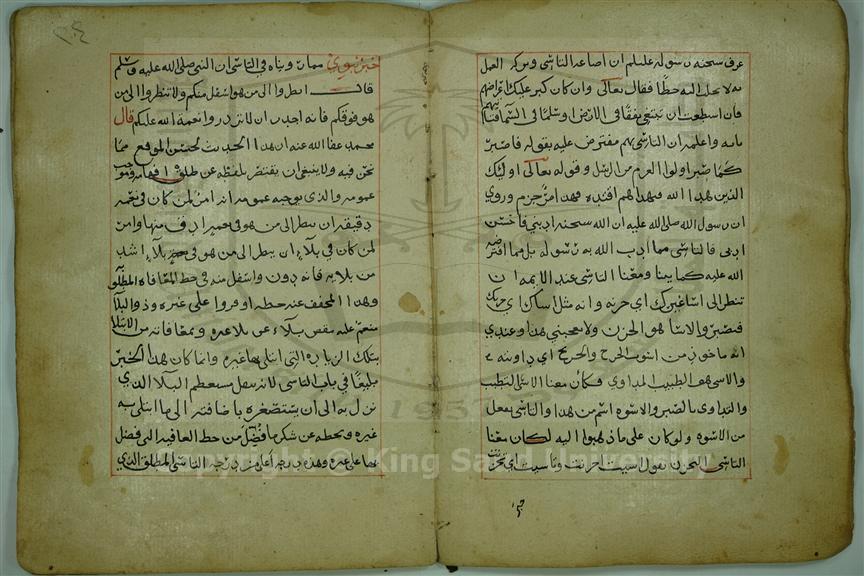 عرف سبحنه رسوله عليلم ان اضاعه الناسي وترك العمل
به لا يحل اليه حظا فقال تعالى وان كان كبر عليك اعراضهم
فان اسطعت ان تبتغي نفقا في الارض او سلما في السما فتاتيهم
بايه واعلمه ان التاسي بهم مفترض عليه بقوله فاصبر
كما صبر اولوا العزم من الرسل وقوله تعالى اوليك
الذين هدا الله فبهداهم اقتده فهدا امر جزم وروي
ان رسول الله صلى الله عليه ان الله سبحنه ادبني فاحسن
ادبي فالتاسي مما ادب الله به رسوله بل مما افترضه
الله عليه كما بينا ومعنا التاسي عند الايمه ان
تنظر الى اسا غيرك اي حزنه وانه مثل اساك اي حزنك
فتصبر والاسا هو الحزن ولا يعجبني هدا وعندي
انه ماخوذ من اسوت الجرح والجريح اي داويته
والاسي هو الطبيب المداوي فكأن معنا الاسي التطبب
والتداوي بالصبر والاسوه اسم من هدا والتاسي تفعل
من الاسوه ولو كان على ما ذهبوا اليه لكان معنا
التاسي التحزن تقول اسيت اي حزنت وتاسيت اي تحزنت
خبر
خبر نبوي مما رويناه في التاسي ان النبي صلى الله عليه وسلم
قال انظروا الى من هو اسفل منكم ولا تنظروا الى من
هو فوقكم فانه اجدر ان لا تزدروا نعمة الله عليكم قال
محمد عفا الله عنه ان هدا الحديث لحسن الموقع مما
نحن فيه ولا ينبغي ان يقتصر بلفظه عن
عمومه والذي يوجبه عمومه انه امر لمن كان في نعمه
دقيقه ان ينظر الى من هو في نعمه ادق منها وامر
لمن كان في بلاء ان ينظر الى من هو في بلاء اشد
من بلايه فانه دون واسفل منه في حظ المعافاه المطلق
وهدا المخفف عنه حظه اوفر واعلى من غيره وذو البلا
منعم عليه بنقص بلاءه عن بلا غيره وبمعافاته من الابتلا
بتلك الزياده التي ابتلي بها غيره وانما كان هدا الخبر
بليغا في باب التاسي لانه ينقل مستعظم البلا الذي
نزل به الى ان يستصغره باضافته الى ما ابتلي به
غيره ويحطه عن شكر ما فضل من حظ العافيه التي فضل
بها على غيره وهذه درجه اعلى من درجه التاسي المطلق الذي
Copyright © King Saud University
1957